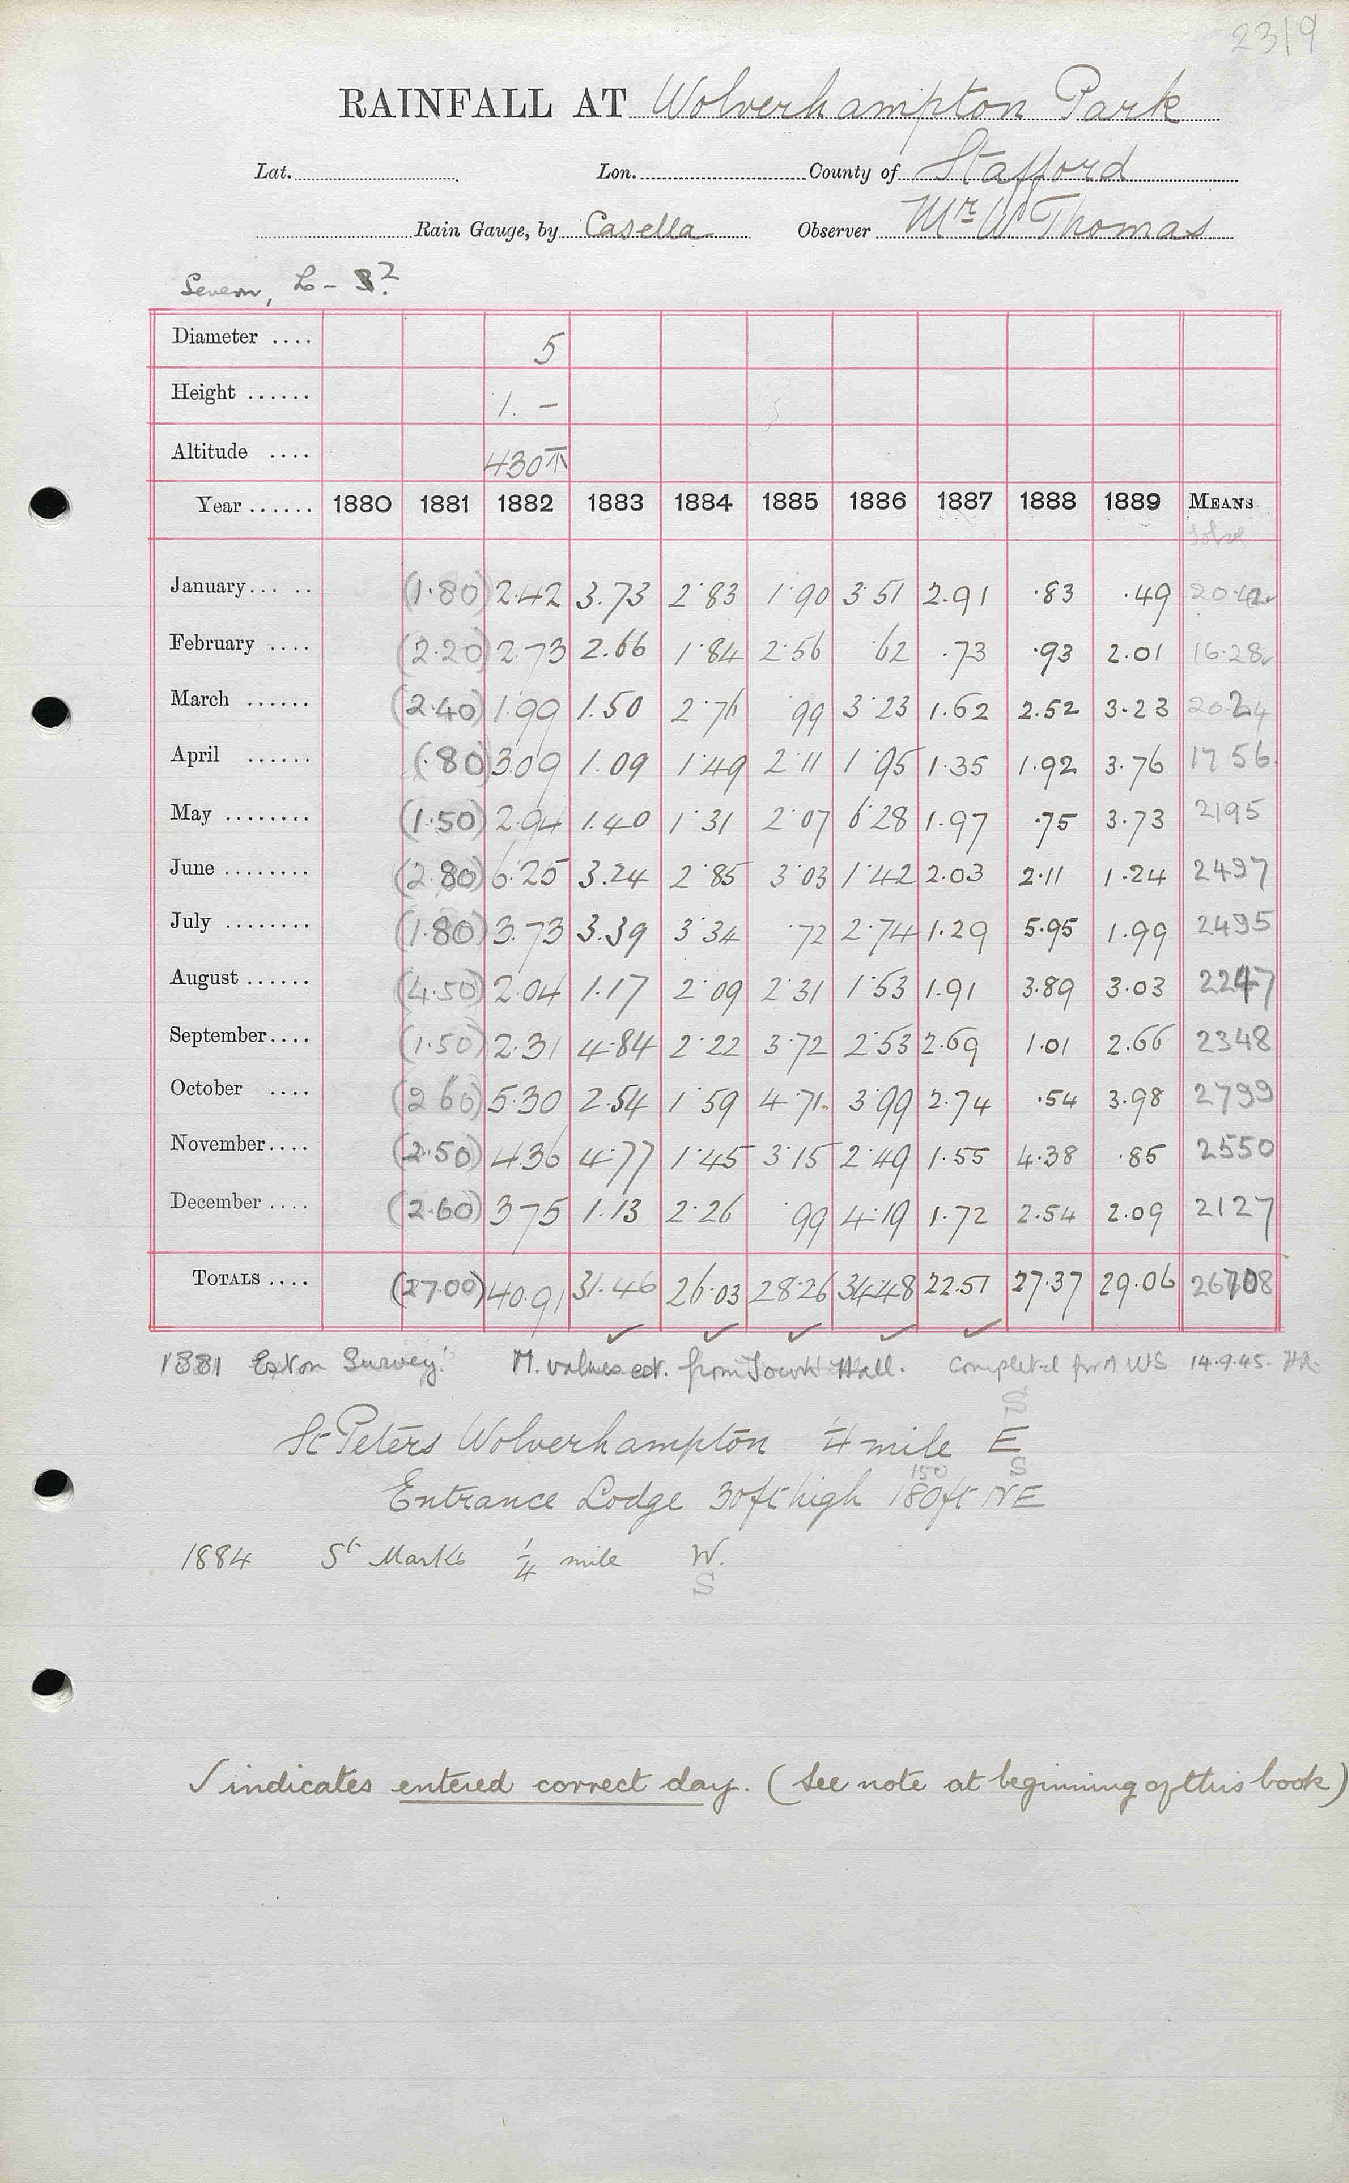 2319
RAINFALL AT Wolverhampton Park
Lat. Lon. County of Stafford
Rain Gauge, by Casella Observer Mr W Thomas
Severn, L - S?
Diameter .... 5
Height ...... 1. -
Altitude .... 430 T
Year ...... 1880 1881 1882 1883 1884 1885 1886 1887 1888 1889 MEANS
January... .. (1.80) 2.42 3.73 2.83 1.90 3.51 2.91 .83 .49 20.42
February .... (2.20) 2.73 2.66 1.84 2.56 .62 .73 .93 2.01 16.28
March ...... (2.40) 1.99 1.50 2.76 .99 3.23 1.62 2.52 3.23 20.24
April ...... (.80) 3.09 1.09 1.49 2.11 1.95 1.35 1.92 3.76 17 56
May ........ (1.50) 2.94 1.40 1.31 2.07 6.28 1.97 .75 3.73 2195
June ........ (2.80) 6.25 3.24 2.85 3.03 1.42 2.03 2.11 1.24 2497
July ........ (1.80) 3.73 3.39 3.34 .72 2.74 1.29 5.95 1.99 2495
August ...... (4.50) 2.04 1.17 2.09 2.31 1.53 1.91 3.89 3.03 2247
September.... (1.50) 2.31 4.84 2.22 3.72 2.53 2.69 1.01 2.66 2348
October .... (2 60) 5.30 2.54 1.59 4.71 3.99 2.74 .54 3.98 2799
November.... (2.50) 4.36 4.77 1.45 3.15 2.49 1.55 4.38 .85 2550
December .... (2.60) 3.75 1.13 2.26 .99 4.19 1.72 2.54 2.09 2127
TOTALS .... (27.00) 40.91 31.46 26.03 28.26 34.48 22.51 27.37 29.06 26708
✓ ✓ ✓ ✓ ✓
1881 Exton Survey. M. values est. from Town Hall. Completed for A WS 14.9.45.
S
St Peters Wolverhampton ¼ mile E
150 S
Entrance Lodge 30ft high 180ft NE
1884 St Marks ¼ mile W.
S
✓ indicates entered correct day. (See note at beginning of this book)